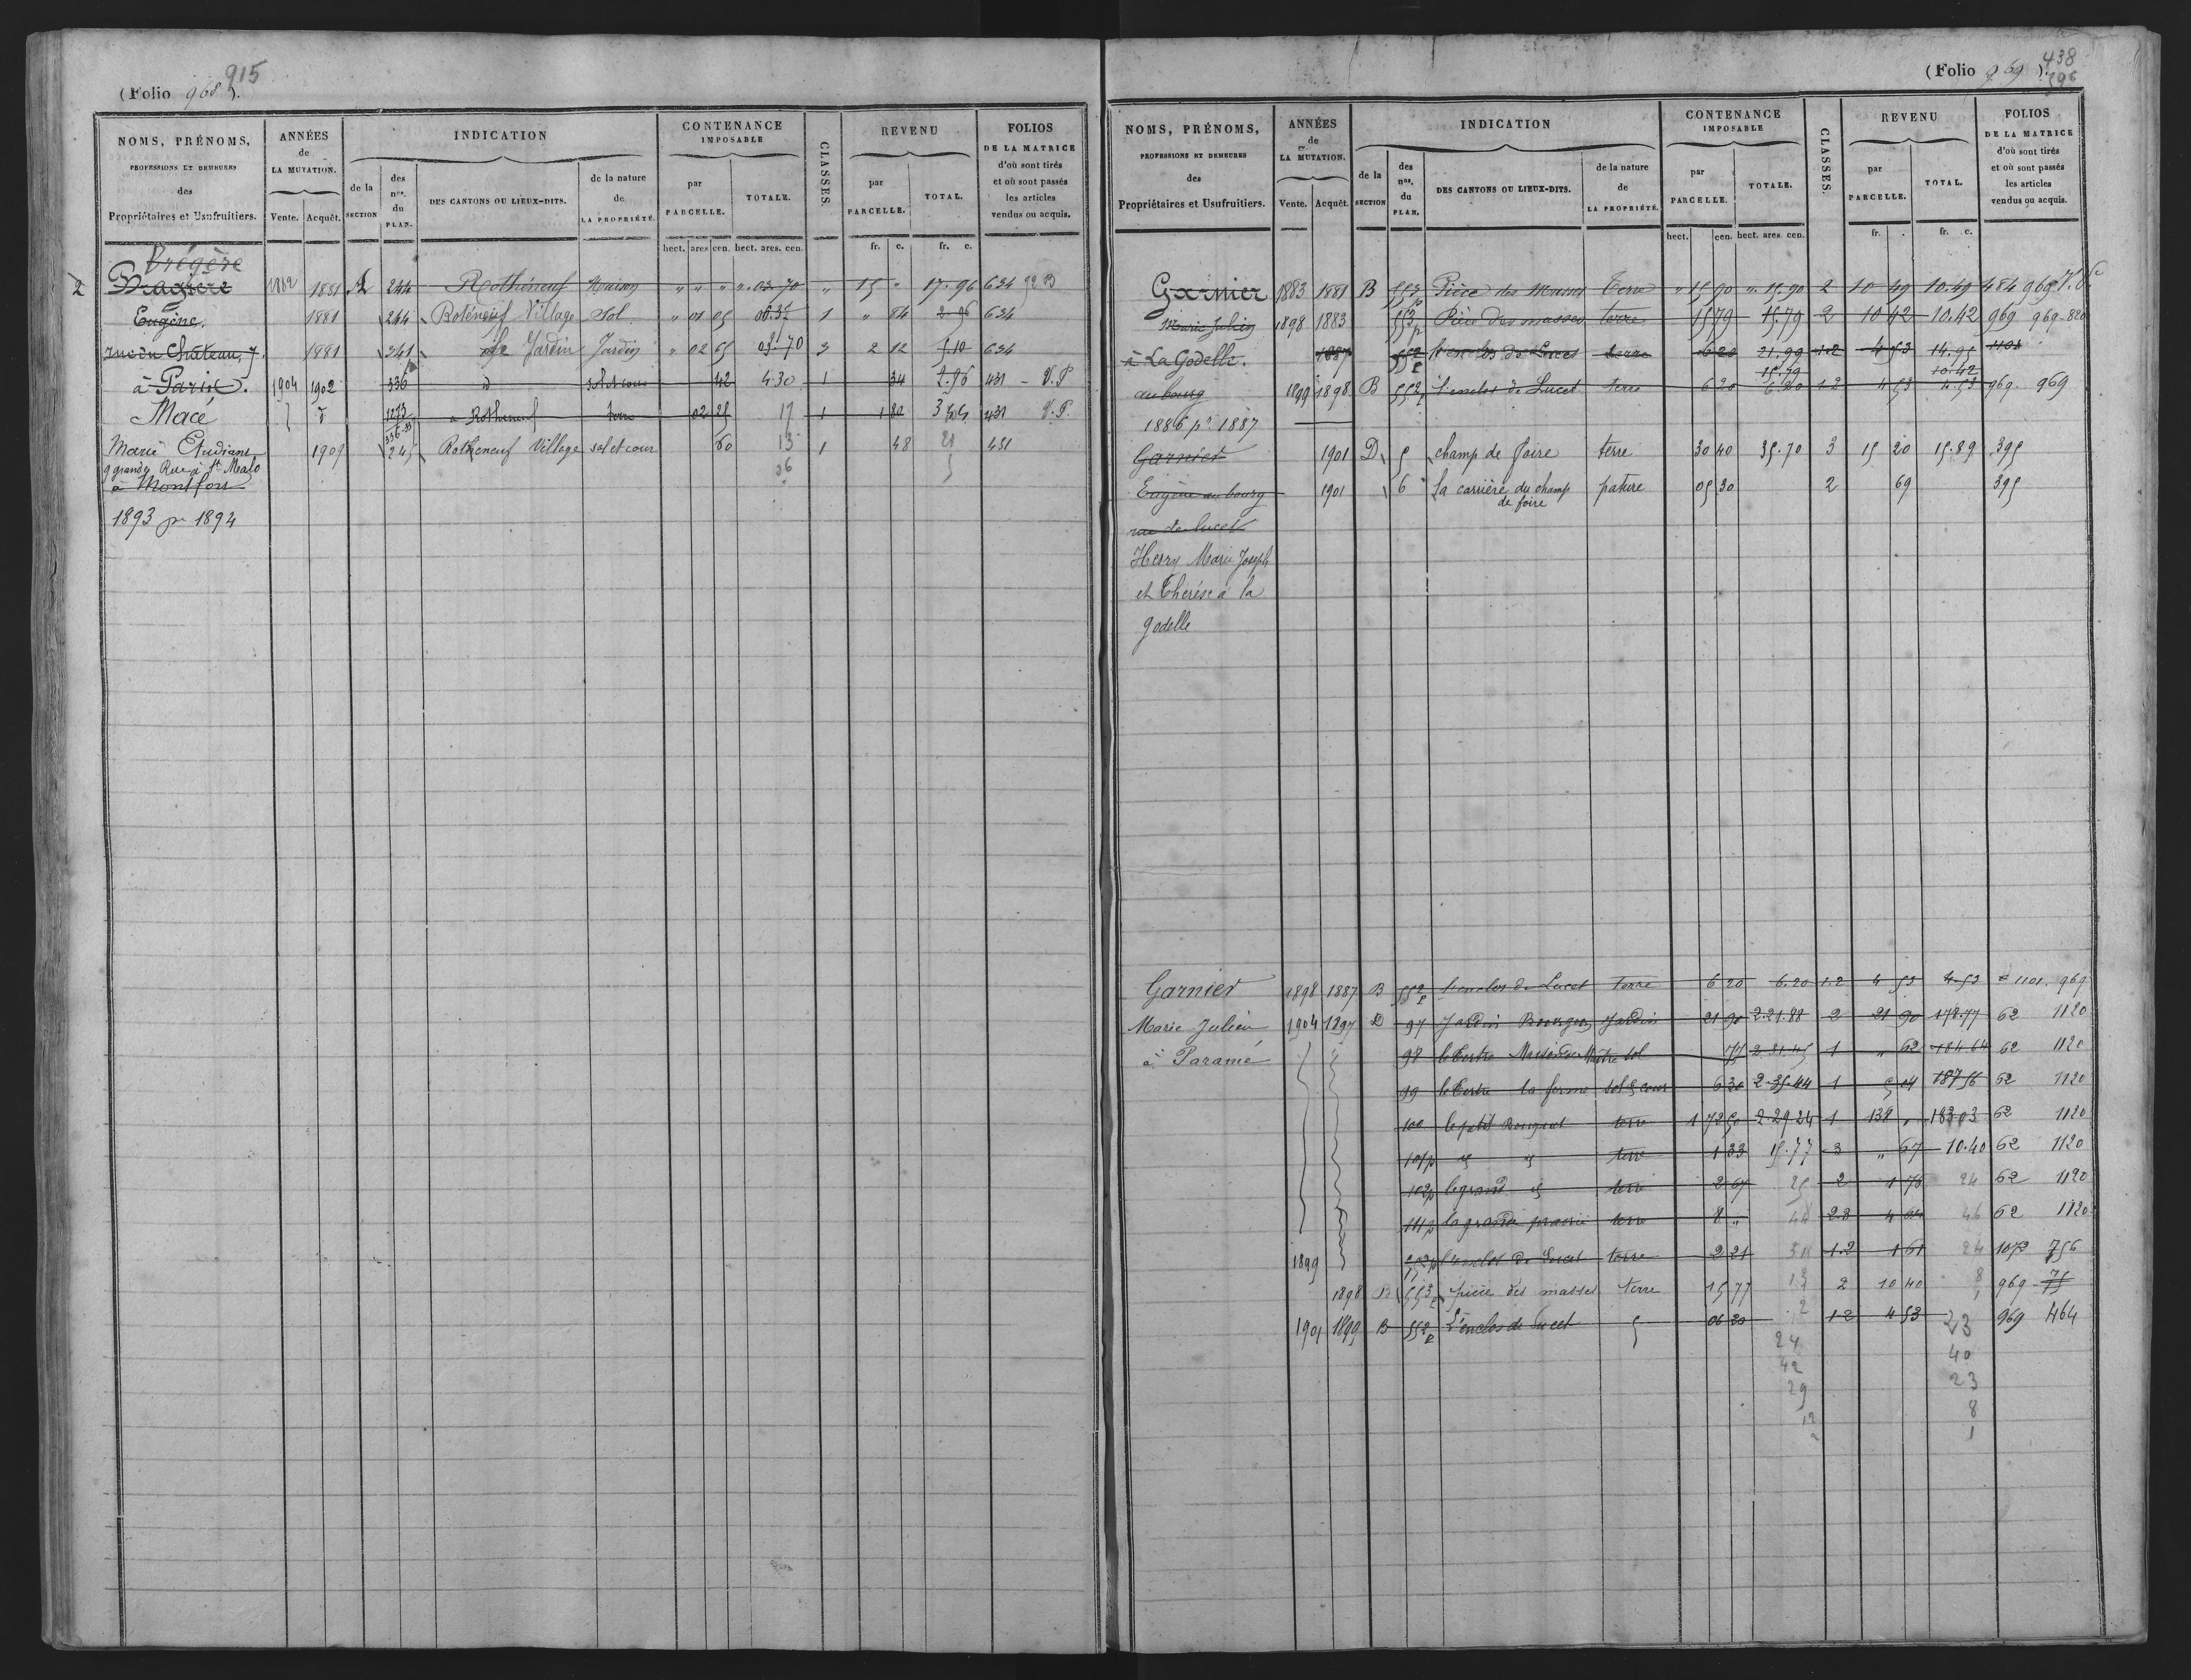 915
(Folio 968).
NOMS, PRÉNOMS, PROFESSIONS ET DEMEURES des Propriétaires et Usufruitiers.
ANNÉES de LA MUTATION. Vente. Acquêt.
INDICATION de la SECTION des nos. du PLAN. DES CANTONS OU LIEUX-DITS. de la nature de LA PROPRIÉTÉ.
CONTENANCE IMPOSABLE par PARCELLE. TOTALE.
CLASSES.
REVENU par PARCELLE. TOTAL.
FOLIOS DE LA MATRICE d'où sont tirés et où sont passés les articles vendus ou acquis.
hect. ares cen. hect. ares. cen. fr. c. fr. c.
Brégère
2 1882 1881 A 244 Rothéneuf Maison " " " ". 03.70 " 15 " 17.96 634
Eugène. 1881 244 Roténeuf Village Sol " 01 05 1 " 84 634
rue du Château, 7. 1881 341 Le Jardin Jardin " 02 65 03 70 3 2 12 5.10 634
à Paris. 1904 1902 336 d sol et cour 42 4.30 1 34 431 - V.P
Macé 1273 à Rotheneuf terre 02 25 17 1 1 80 431 V.P.
Marie Etudiant 1909 245 Rotheneuf Village sol et cour 60 13 1 48 21 431
9 grande Rue à St Malo 26
à Montfort
1893 pr 1894
438
(Folio 969).
396
NOMS, PRÉNOMS, PROFESSIONS ET DEMEURES des Propriétaires et Usufruitiers.
ANNÉES de LA MUTATION. Vente. Acquêt.
INDICATION de la SECTION des nos. du PLAN. DES CANTONS OU LIEUX-DITS. de la nature de LA PROPRIÉTÉ.
CONTENANCE IMPOSABLE par PARCELLE. TOTALE.
CLASSES.
REVENU par PARCELLE. TOTAL.
FOLIOS DE LA MATRICE d'où sont tirés et où sont passés les articles vendus ou acquis.
hect. cen. hect. ares. cen. fr. fr. c.
Garnier 1883 1881 B 553p Pièce des Masses Terre " 15 90 ". 15.90 2 10 49 10.49 484 969
Marie Julien 1898 1883 553p Pièce des masses terre 15 79 15.79 2 10 42 10.42 969 969-820
à La Godelle. 1887 552p l'enclos de Lucet terre 6 20 21.99 1.2 4 53 14.95 1101
15.79 10.42
au bourg 1899 1898 B 552p l'enclos de Lucet terre 6 20 6.20 1.2 4 53 4.53 969. 969
1886 pr 1887
Garnier 1901 D 5 champ de foire terre 30 40 35.70 3 15 20 15.89 395
Eugène au bourg 1901 6 la carrière du champ de foire pature 05 30 2 69 395
rue de lucet
Herry Marie Joseph
et Thérèse à la
godelle
Garnier 1898 1887 B 552p l'enclos de Lucet terre 6 20 6.20 1.2 4 53 4.53 1101. 969
Marie Julien 1904 1897 D 97 Jardin Jardin 21 90 2.21.88 2 21 90 178.77 62 1120
à Paramé 98 le Tertre Maison de Maître sol 75 1 " 62 184 64 62 1120
99 le Tertre la ferme sol & cour 6 30 2.35.44 1 5 04 187 56 62 1120
100 le petit terre 1 72 50 2 29 24 1 138 " 183 03 62 1120
101p id id terre 1 33 15.77 3 " 67 10.40 62 1120
102p le grand id terre 2 67 25 2 1 76 24 62 1120
111p la grande prairie terre 8 " 44 2.3 4 64 46 62 1120
1899 l'enclos de Lucet terre 2 21 1.2 1 61 24 1073 756
1898 B 553p pièce des masses terre 15 77 13 2 10 40 8 969
1901 1899 B 552p L'enclos de Lucet 06 20 2 1.2 4 53 23 969 464
24 40
42 23
29 8
12 1